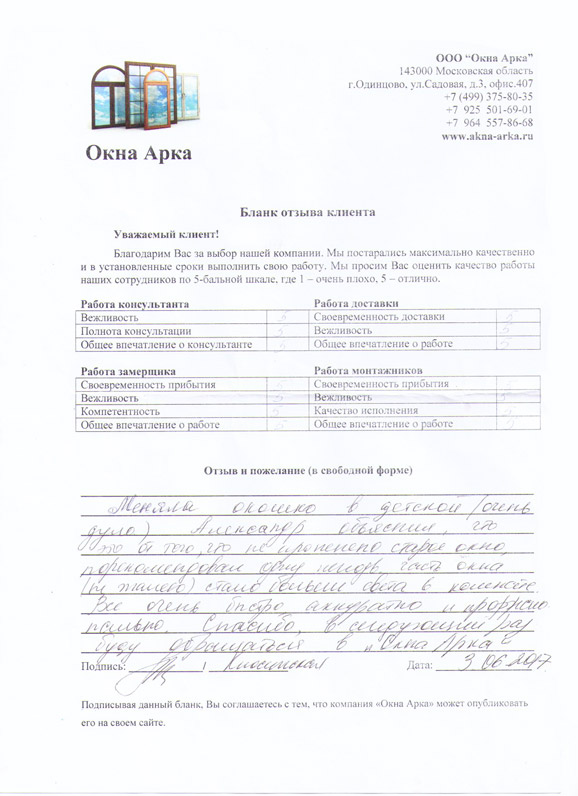 ООО “Окна Арка”
143000 Московская область
г.Одинцово, ул.Садовая, д.3, офис.407
+7 (499) 375-80-35
+7 925 501-69-01
+7 964 557-86-68
www.akna-arka.ru
Окна Арка
Бланк отзыва клиента
Уважаемый клиент!
Благодарим Вас за выбор нашей компании. Мы постарались максимально качественно
и в установленные сроки выполнить свою работу. Мы просим Вас оценить качество работы
наших сотрудников по 5-бальной шкале, где 1 – очень плохо, 5 – отлично.
Работа консультанта
Вежливость 5
Полнота консультации 5
Общее впечатление о консультанте 5
Работа доставки
Своевременность доставки 5
Вежливость 5
Общее впечатление о работе 5
Работа замерщика
Своевременность прибытия 5
Вежливость 5
Компетентность 5
Общее впечатление о работе 5
Работа монтажников
Своевременность прибытия 5
Вежливость 5
Качество исполнения 5
Общее впечатление о работе 5
Отзыв и пожелание (в свободной форме)
Меняли окошко в детской (очень
дуло) Александр объяснил, что
это от того, что не пропенено старое окно,
порекомендовал одну часть окна
стало больше света в комнате.
Все очень быстро, аккуратно и професио
нально. Спасибо, в следующий раз
буду обращаться в „Окна Арка“
Подпись: /
Дата: 3 06 2017
Подписывая данный бланк, Вы соглашаетесь с тем, что компания «Окна Арка» может опубликовать
его на своем сайте.